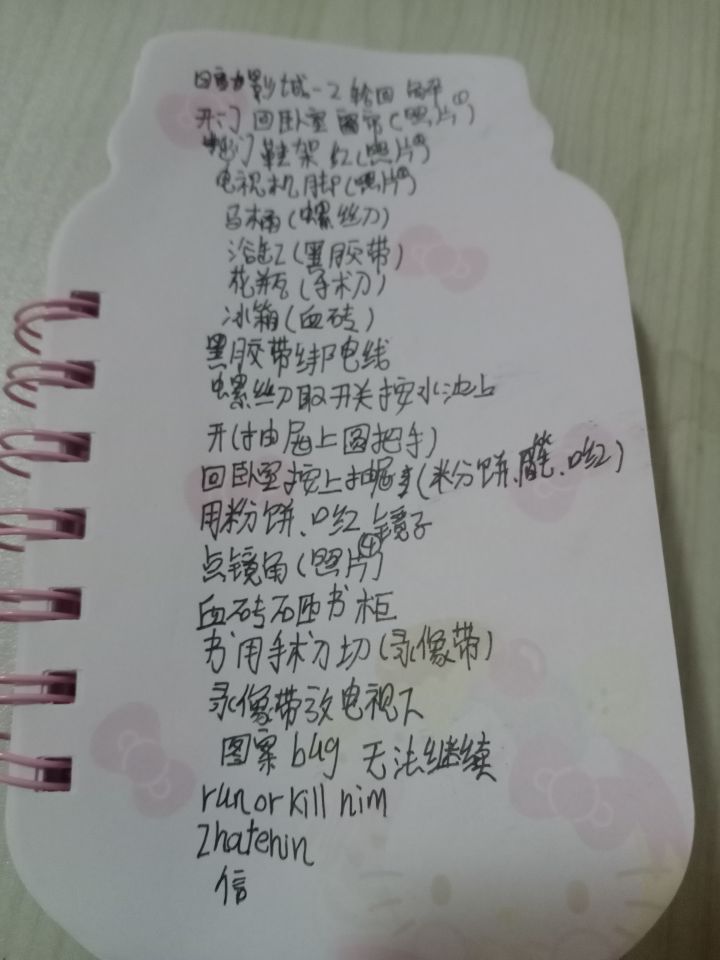 影城-2 轮回
开门 回卧室 窗帘(照片①)
门 鞋架 红(照片②)
电视机脚(照片③)
马桶(螺丝刀)
浴缸(黑胶带)
花瓶(手术刀)
冰箱(血砖)
黑胶带绑电线
螺丝刀取开关按水池上
开(抽屉上圆把手)
回卧室按上抽屉拿(粉饼、口红)
用粉饼、口红 镜子
点镜角(照片④)
血砖砸书柜
书用手术刀切(录像带)
录像带放电视下
图案bug 无法继续
run or kill him
信